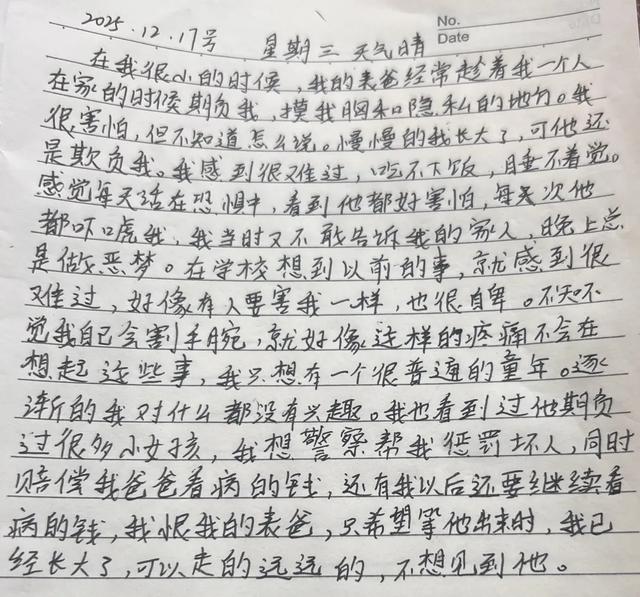 2025.12.17号 星期三 天气晴
No.
Date
在我很小的时候，我的表爸经常趁着我一个人
在家的时候期负我，摸我胸和隐私的地方。我
很害怕，但不知道怎么说。慢慢的我长大了，可他还
是欺负我。我感到很难过，吃不下饭，睡不着觉。
感觉每天活在恐惧中，看到他都好害怕，每次他
都吓唬我，我当时又不敢告诉我的家人，晚上总
是做恶梦。在学校想到以前的事，就感到很
难过，好像有人要害我一样，也很自卑。不知不
觉我自己会割手腕，就好像这样的疼痛不会在
想起这些事，我只想有一个很普通的童年。逐
渐的我对什么都没有兴趣。我也看到过他期负
过很多小女孩，我想警察帮我惩罚坏人，同时
赔偿我爸爸看病的钱，还有我以后还要继续看
病的钱，我恨我的表爸，只希望等他出来时，我已
经长大了，可以走的远远的，不想见到他。